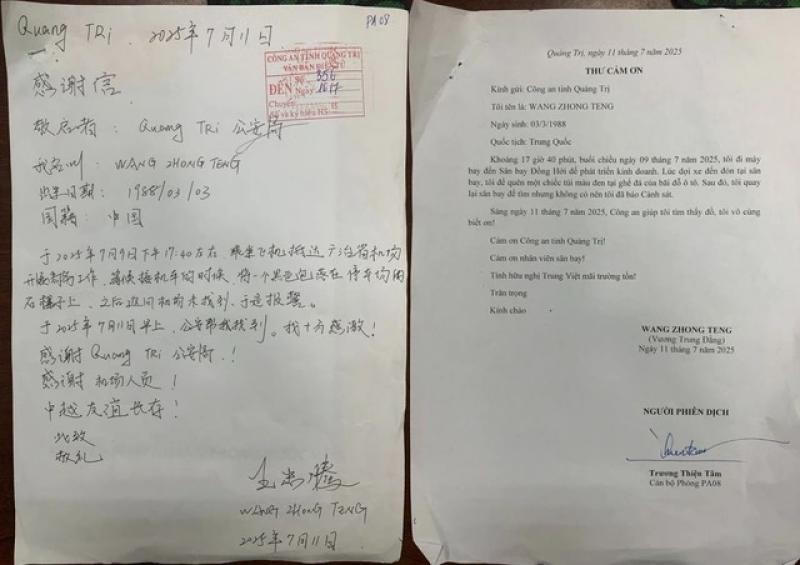 Quang TRi. 2025年7月11日
PA08
CÔNG AN TỈNH QUẢNG TRỊ
VĂN BẢN ĐIỆN TỬ
ĐẾN Số: 356
Ngày
Chuyển:
Số và ký hiệu HS:
感谢信
敬启者: Quang TRi 公安局
我名叫: WANG ZHONG TENG
出生日期: 1988/03/03
国籍: 中国
于2025年7月9日下午17:40左右,乘坐飞机抵达广治省机场
开展商务工作,等候接机车的时候,将一个黑色包落在停车场的
石椅子上,之后返回机场未找到,于是报警。
于2025年7月11日早上,公安帮我找到。我十分感激!
感谢 Quang TRi 公安局!
感谢 机场人员!
中越友谊长存!
此致
敬礼
WANG ZHONG TENG
2025年7月11日
Quảng Trị, ngày 11 tháng 7 năm 2025
THƯ CẢM ƠN
Kính gửi: Công an tỉnh Quảng Trị
Tôi tên là: WANG ZHONG TENG
Ngày sinh: 03/3/1988
Quốc tịch: Trung Quốc
Khoảng 17 giờ 40 phút, buổi chiều ngày 09 tháng 7 năm 2025, tôi đi máy
bay đến Sân bay Đồng Hới để phát triển kinh doanh. Lúc đợi xe đến đón tại sân
bay, tôi để quên một chiếc túi màu đen tại ghế đá của bãi đỗ ô tô. Sau đó, tôi quay
lại sân bay để tìm nhưng không có nên tôi đã báo Cảnh sát.
Sáng ngày 11 tháng 7 năm 2025, Công an giúp tôi tìm thấy đồ, tôi vô cùng
biết ơn!
Cảm ơn Công an tỉnh Quảng Trị!
Cảm ơn nhân viên sân bay!
Tình hữu nghị Trung Việt mãi trường tồn!
Trân trọng
Kính chào
WANG ZHONG TENG
(Vương Trung Đằng)
Ngày 11 tháng 7 năm 2025
NGƯỜI PHIÊN DỊCH
Trương Thiện Tâm
Cán bộ Phòng PA08